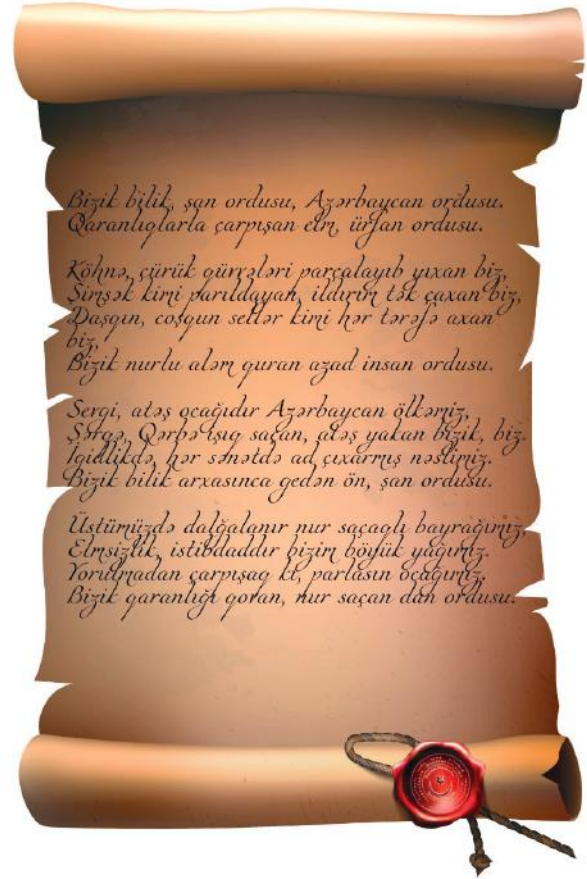 Bizik bilik, şan ordusu, Azərbaycan ordusu.
Qaranlıqlarla çarpışan elm, ürfan ordusu.
Köhnə, çürük qüvvələri parçalayıb yıxan biz,
Şimşək kimi parıldayan, ildırım tək çaxan biz,
Daşqın, coşqun sellər kimi hər tərəfə axan
biz,
Bizik nurlu aləm quran azad insan ordusu.
Sevgi, atəş ocağıdır Azərbaycan ölkəmiz,
Şərqə, Qərbə işıq saçan, atəş yakan bizik, biz.
Igidlikdə, hər sənətdə ad çıxarmış nəslimiz.
Bizik bilik arxasınca gedən ön, şan ordusu.
Üstümüzdə dalğalanır nur saçaqlı bayrağımız,
Elmsizlik, istibdaddır bizim böyük yağımız.
Yorulmadan çarpışaq ki, parlasın ocağımız,
Bizik qaranlığı qoran, nur saçan dan ordusu.